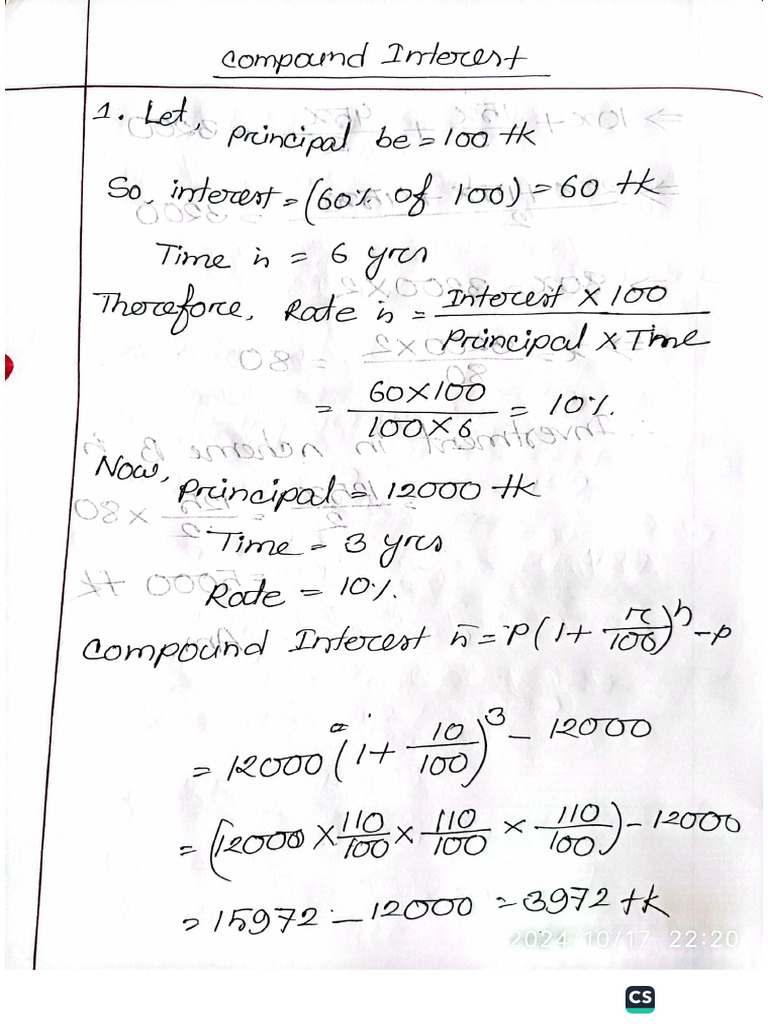 Compound Interest
1. Let,
Principal be = 100 tk
So, interest = (60% of 100) = 60 tk
Time is = 6 yrs
Therefore, Rate is = Interest × 100 / Principal × Time
= 60×100 / 100×6 = 10%.
Now,
Principal = 12000 tk
Time = 3 yrs
Rate = 10%.
Compound Interest is = P(1 + r/100)^n - P
= 12000 (1 + 10/100)^3 - 12000
= (12000 × 110/100 × 110/100 × 110/100) - 12000
= 15972 - 12000 = 3972 tk
2024/10/17 22:20
CS